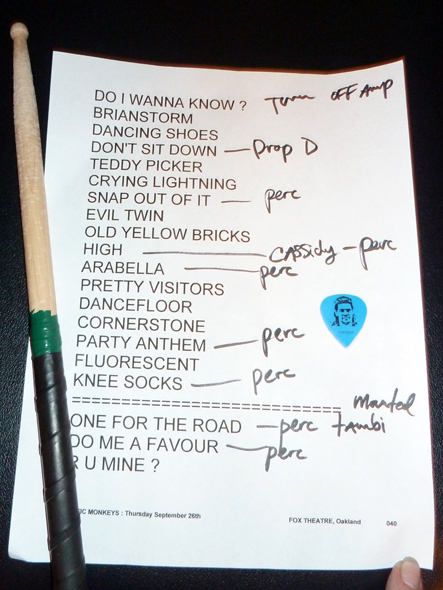 DO I WANNA KNOW ? Turn OFF Amp
BRIANSTORM
DANCING SHOES
DON'T SIT DOWN — Drop D
TEDDY PICKER
CRYING LIGHTNING
SNAP OUT OF IT — perc
EVIL TWIN
OLD YELLOW BRICKS
HIGH — CASSidy - perc
ARABELLA — perc
PRETTY VISITORS
DANCEFLOOR
CORNERSTONE
PARTY ANTHEM — perc
FLUORESCENT
KNEE SOCKS — perc
================================
ONE FOR THE ROAD — perc tambi
DO ME A FAVOUR — perc
R U MINE ?
IC MONKEYS : Thursday September 26th FOX THEATRE, Oakland 040